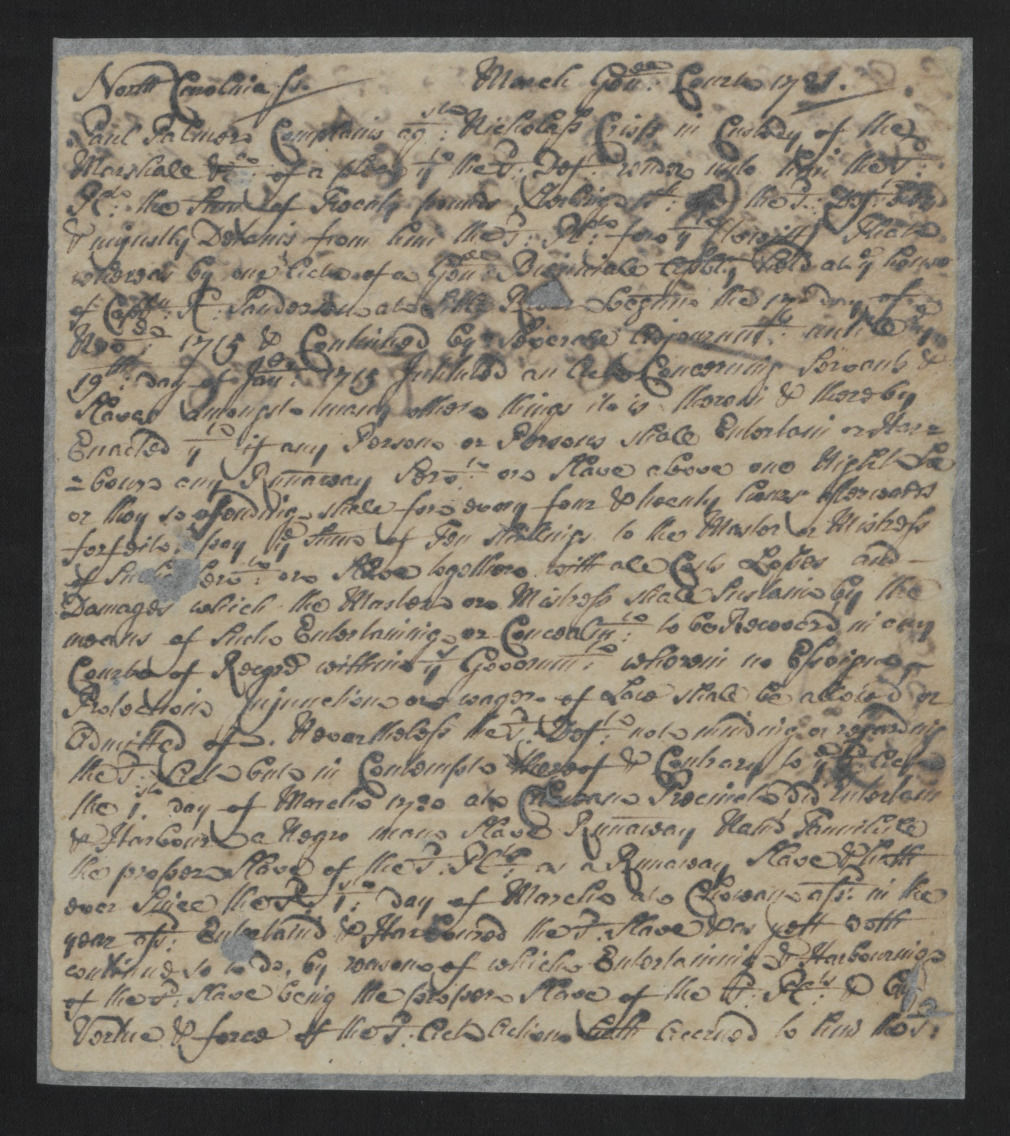 North Carolina ss. March Gen:ll Court 1721.
Paul Palmer Complains ag:st Nicholass Crisp in Custody of the
Marshall &c:a of a plea y:t the s:d Def:t render unto him the s:d
Pl:t the Sum of Twenty pounds Sterling the s:d Def:t
& unjustly Detains from him the s:d Pl:t for y:t (towitt) That
whereas by one Act of a Gen:ll Bienniale Assbly held at y:e house
of Capt:n R: Sandersons at Little River begun the 17:th day of
Nov:br 1715 & Continued by Severale adjournm:ts untile
19:th day of Jan:ry 1715 Intituled an Act Concerning Servants &
Slaves amongst many other things it is therein & thereby
Enacted y:t if any Person or Persons shall Entertain or Harr=
=bour any Runaway Serv:t or Slave above one Night he
or they so offending shall for every four & twenty hours afterwards
forfeit & pay y:e Sum of Ten Shillings to the Master or Mistress
of Such Serv:t or Slave together with all Costs Losses and -
Damages which the Master or Mistress shall Sustain by the
means of Such Entertaining or Concealm:t to be Recovered in any
Court of Record within y:s Governm:t wherein no Essoign
Protection Injunction or wager of Law shall be allowed or
Admitted of. Nevertheless the s:d Def:t not minding or regarding
the s:d Act but in Contempt thereof & Contrary to y:e s:d Act
the 1:st day of March 1720 at Chowan Precinct did Entertain
& Harbour a Negro man Slave Runaway Nam'd
the proper Slave of the s:d Pl:t as a Runaway Slave & hath
ever Since the s:d 1:st day of March at Chowan afs:d in the
year afs:d Entertaind & Harboured the s:d Slave & as yett doth
continue so to do, by reason of which Entertaining & Harbouring
of the s:d Slave being the proper Slave of the s:d Pl:ts & by
Vertue & force of the s:d Act Action hath accrued to him the s:d